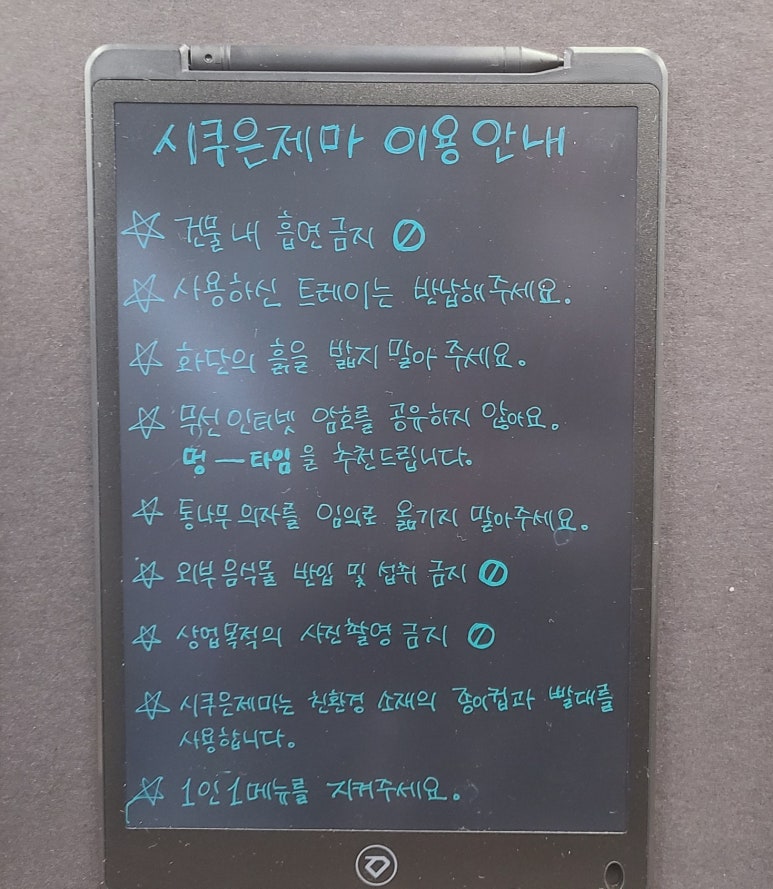 시쿠은제마 이용안내
☆ 건물 내 흡연금지 ⊘
☆ 사용하신 트레이는 반납해주세요.
☆ 화단의 흙을 밟지 말아 주세요.
☆ 무선인터넷 암호를 공유하지 않아요.
멍—타임을 추천드립니다.
☆ 통나무 의자를 임의로 옮기지 말아주세요.
☆ 외부음식물 반입 및 섭취 금지 ⊘
☆ 상업목적의 사진촬영금지 ⊘
☆ 시쿠은제마는 친환경 소재의 종이컵과 빨대를
사용합니다.
☆ 1인 1메뉴를 지켜주세요.